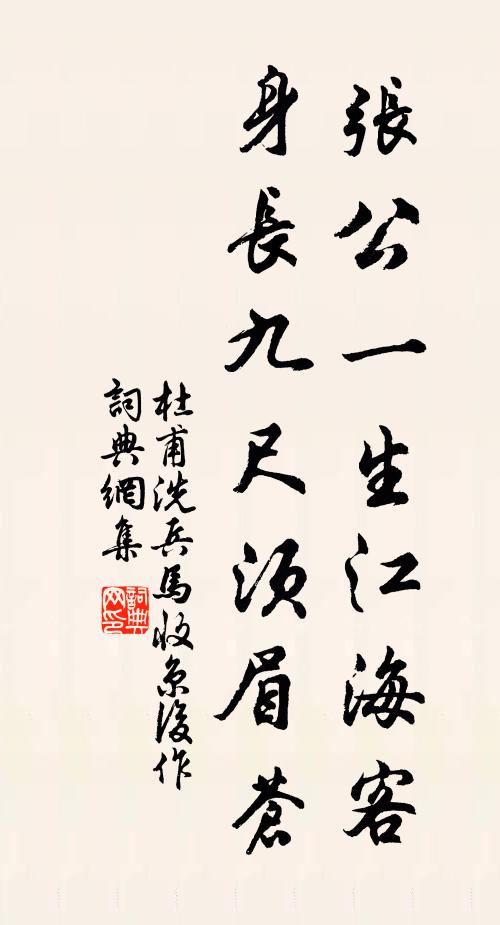 張公一生江海客
身長九尺須眉蒼
杜甫洗兵馬收京後作
詞典網集
詞典网印